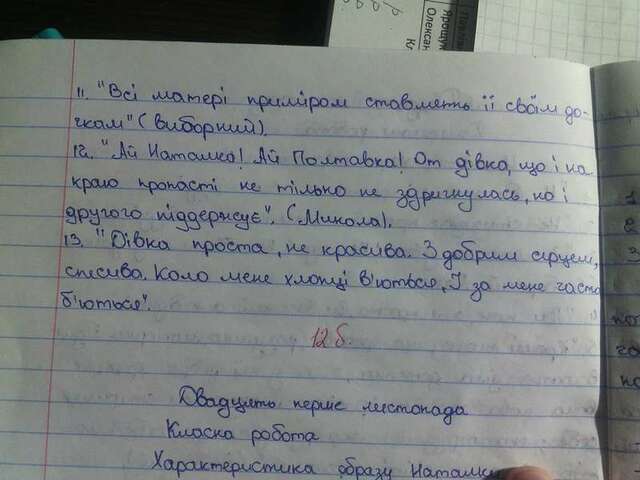 Ярощук
Олексан
11. "Всі матері приміром ставлють її своїм до-
чкам" (Виборний).
12. "Ай Наталка! Ай Полтавка! От дівка, що і на
краю пропасті не тілько не здригнулась, но і
другого піддержує". (Микола).
13. "Дівка проста, не красива. З добрим серцем,
спесива. Коло мене хлопці в'ються, І за мене часто
б'ються".
12 б.
Двадцять перше листопада
Класна робота
Характеристика образу Наталки